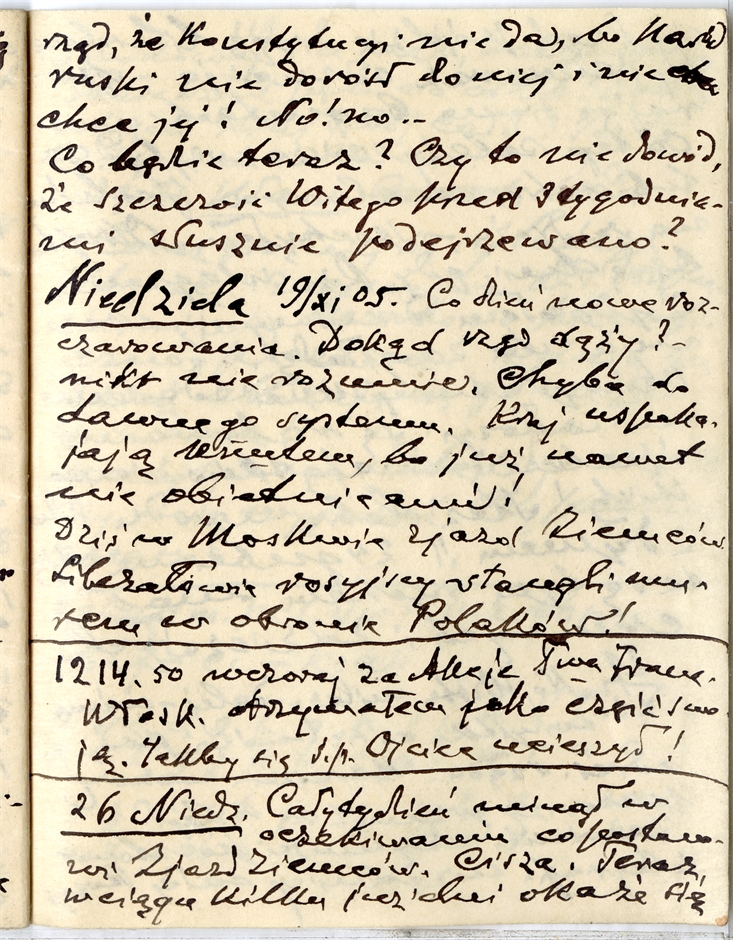 rząd, że Konstytucyi nie da, bo Naród
ruski nie dorósł do niej i nie
chce jej! No! no..
Co będzie teraz? Czy to nie dowód,
że szczerość Witego przed 3 tygodnia-
mi słusznie podejrzewano?
Niedziela 19/XI 05. Co dzień nowe roz-
czarowania. Dokąd rząd dąży? -
nikt nie rozumie. Chyba do
dawnego systemu. Kraj uspaka-
jają , bo już nawet
nie obietnicami!
Dziś w Moskwie zjazd Ziemców.
Liberałowie rosyjscy stanęli mu-
rem w obronie Polaków!
1214.50 wczoraj za Akcje Twa Franc.
Włosk. otrzymałem jako część mo-
ją. Jakby się ś.p. Ojciec ucieszył!
26 Niedz. Cały tydzień minął w
oczekiwaniu co postano-
wi Zjazd Ziemców. Cisza. Teraz,
w ciągu kilku już dni okaże się